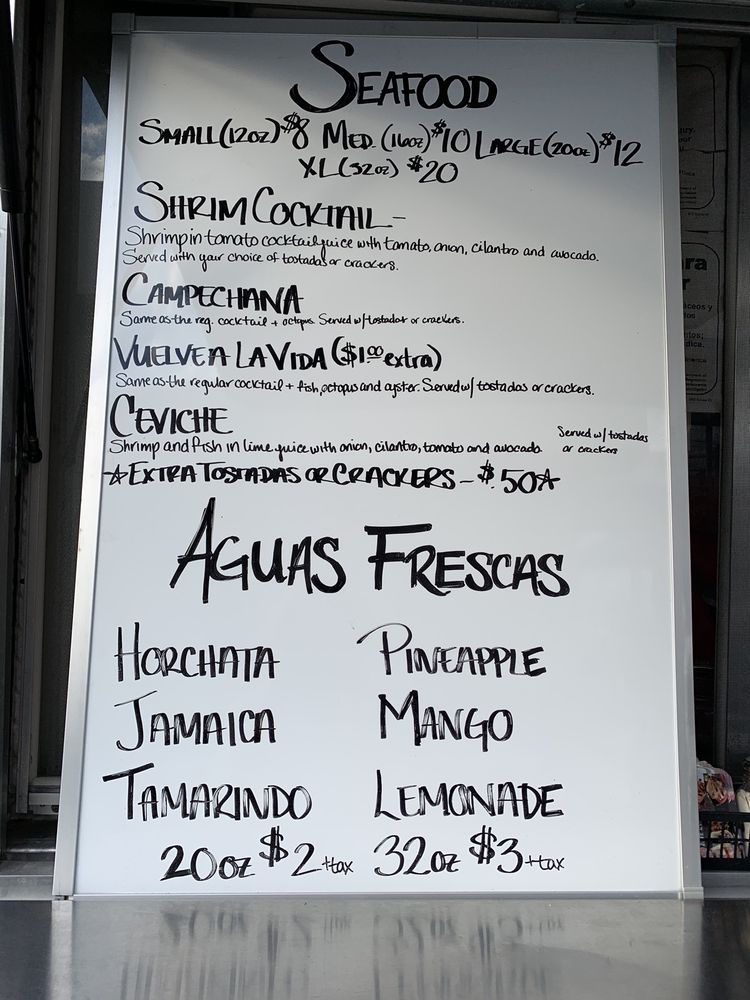 SEAFOOD
SMALL (12oz) $8 MED. (16oz) $10 LARGE (20oz) $12
XL (32oz) $20
SHRIM COCKTAIL-
Shrimp in tomato cocktail juice with tamato, onion, cilantro and avocado.
Served with your choice of tostadas or crackers.
CAMPECHANA
Same as the reg. cocktail + octopus. Served w/ tostadas or crackers.
VUELVE A LA VIDA ($1.00 extra)
Same as the regular cocktail + fish, octopus and oyster. Served w/ tostadas or crackers.
CEVICHE
Shrimp and fish in lime juice with onion, cilantro, tomato and avocado. Served w/ tostadas
or crackers
☆EXTRA TOSTADAS OR CRACKERS - $.50☆
AGUAS FRESCAS
HORCHATA PINEAPPLE
JAMAICA MANGO
TAMARINDO LEMONADE
20oz $2 +tax 32oz $3 +tax